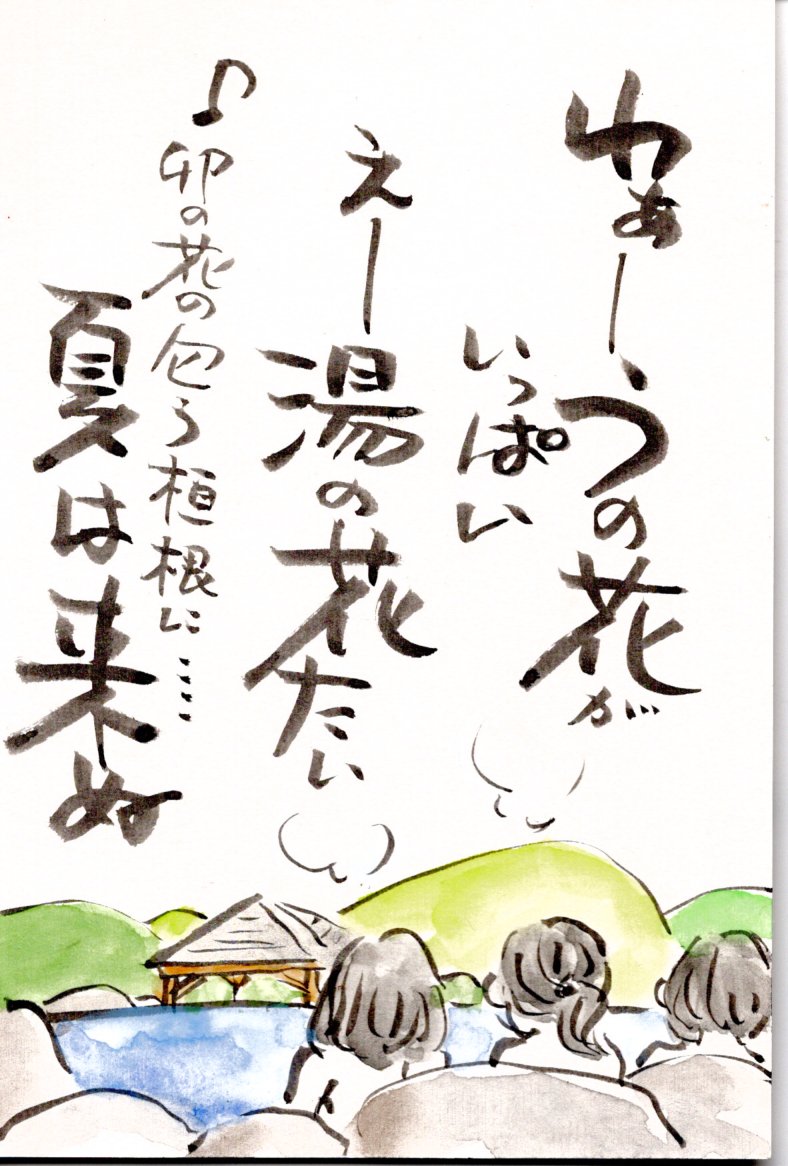 わぁーうの花が
いっぱい
えー湯の花たい
♪卯の花の匂う垣根に……
夏は来ぬ